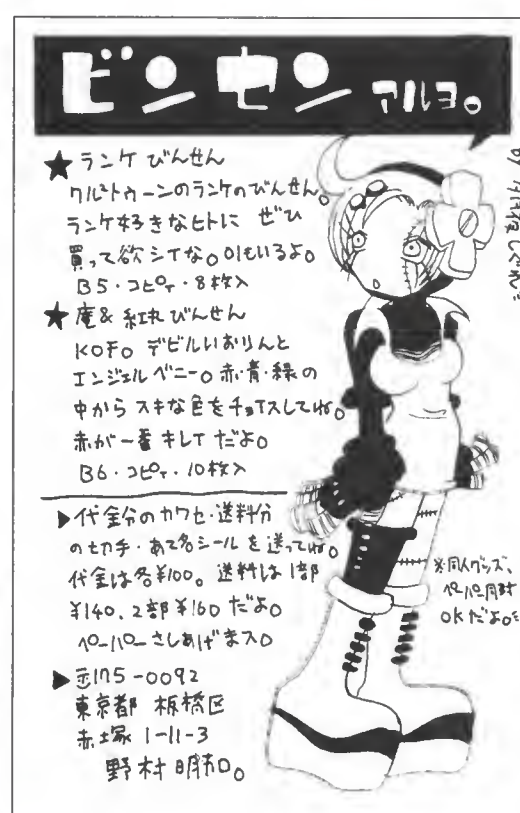 ビンセン アルヨ。
★ ランケ びんせん
クルットゥーンのランケのびんせん。
ランケ好きなヒトに ぜひ
買って欲シイな。01もいるよ。
B5・コピー・8枚入
★ 庵& 紅丸 びんせん
KOF。デビルいおりんと
エンジェルベニー。赤・青・緑の
中から スキな色をチョイスしてね。
赤が一番 キレイ だよ。
B6・コピー・10枚入
▶代金分のカワセ・送料分
の切手・あて名シール を送ってね。
代金は各¥100。送料は 1部
¥140、2部¥160 だよ。
ペーパー さしあげまス。
▶〒175-0092
東京都 板橋区
赤塚 1-11-3
野村 明
※同人グッズ、
ペーパー同封
OKだよ。